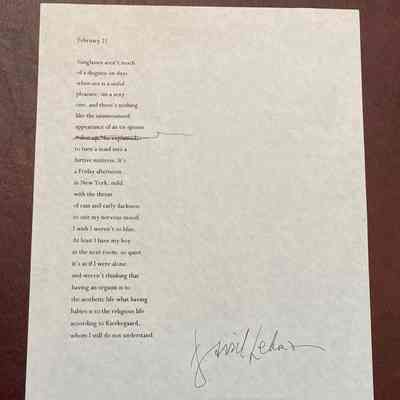 February 21
Sunglasses aren't much
of a disguise on days
when sex is a sinful
pleasure, sin a sexy
one, and there's nothing
like the unannounced
appearance of an ex-spouse
he explained
to turn a maid into a
furtive mistress. It's
a Friday afternoon
in New York, mild
with the threat
of rain and early darkness
to suit my nervous mood.
I wish I weren't so blue.
At least I have my boy
in the next room, so quiet
it's as if I were alone
and weren't thinking that
having an orgasm is to
the aesthetic life what having
babies is to the religious life
according to Kierkegaard,
whom I still do not understand.
David Lehman